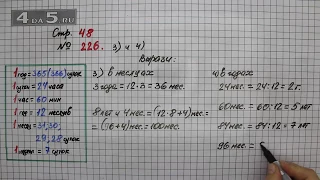 4 DA 5 .RU
Стр. 48
№ 226. 3) и 4)
Вырази:
1 год = 365 (366) суток
1 сутки = 24 часа
1 час = 60 мин
1 год = 12 месяцев
1 месяц = 31, 30,
29, 28 суток
1 неделя = 7 суток
3) в месяцах
3 года = 12·3 = 36 мес.
8 лет и 4 мес. = (12·8+4) мес. =
= (96+4) мес. = 100 мес.
4) в годах
24 мес. = 24:12 = 2 г.
60 мес. = 60:12 = 5 лет
84 мес. = 84:12 = 7 лет
96 мес. =